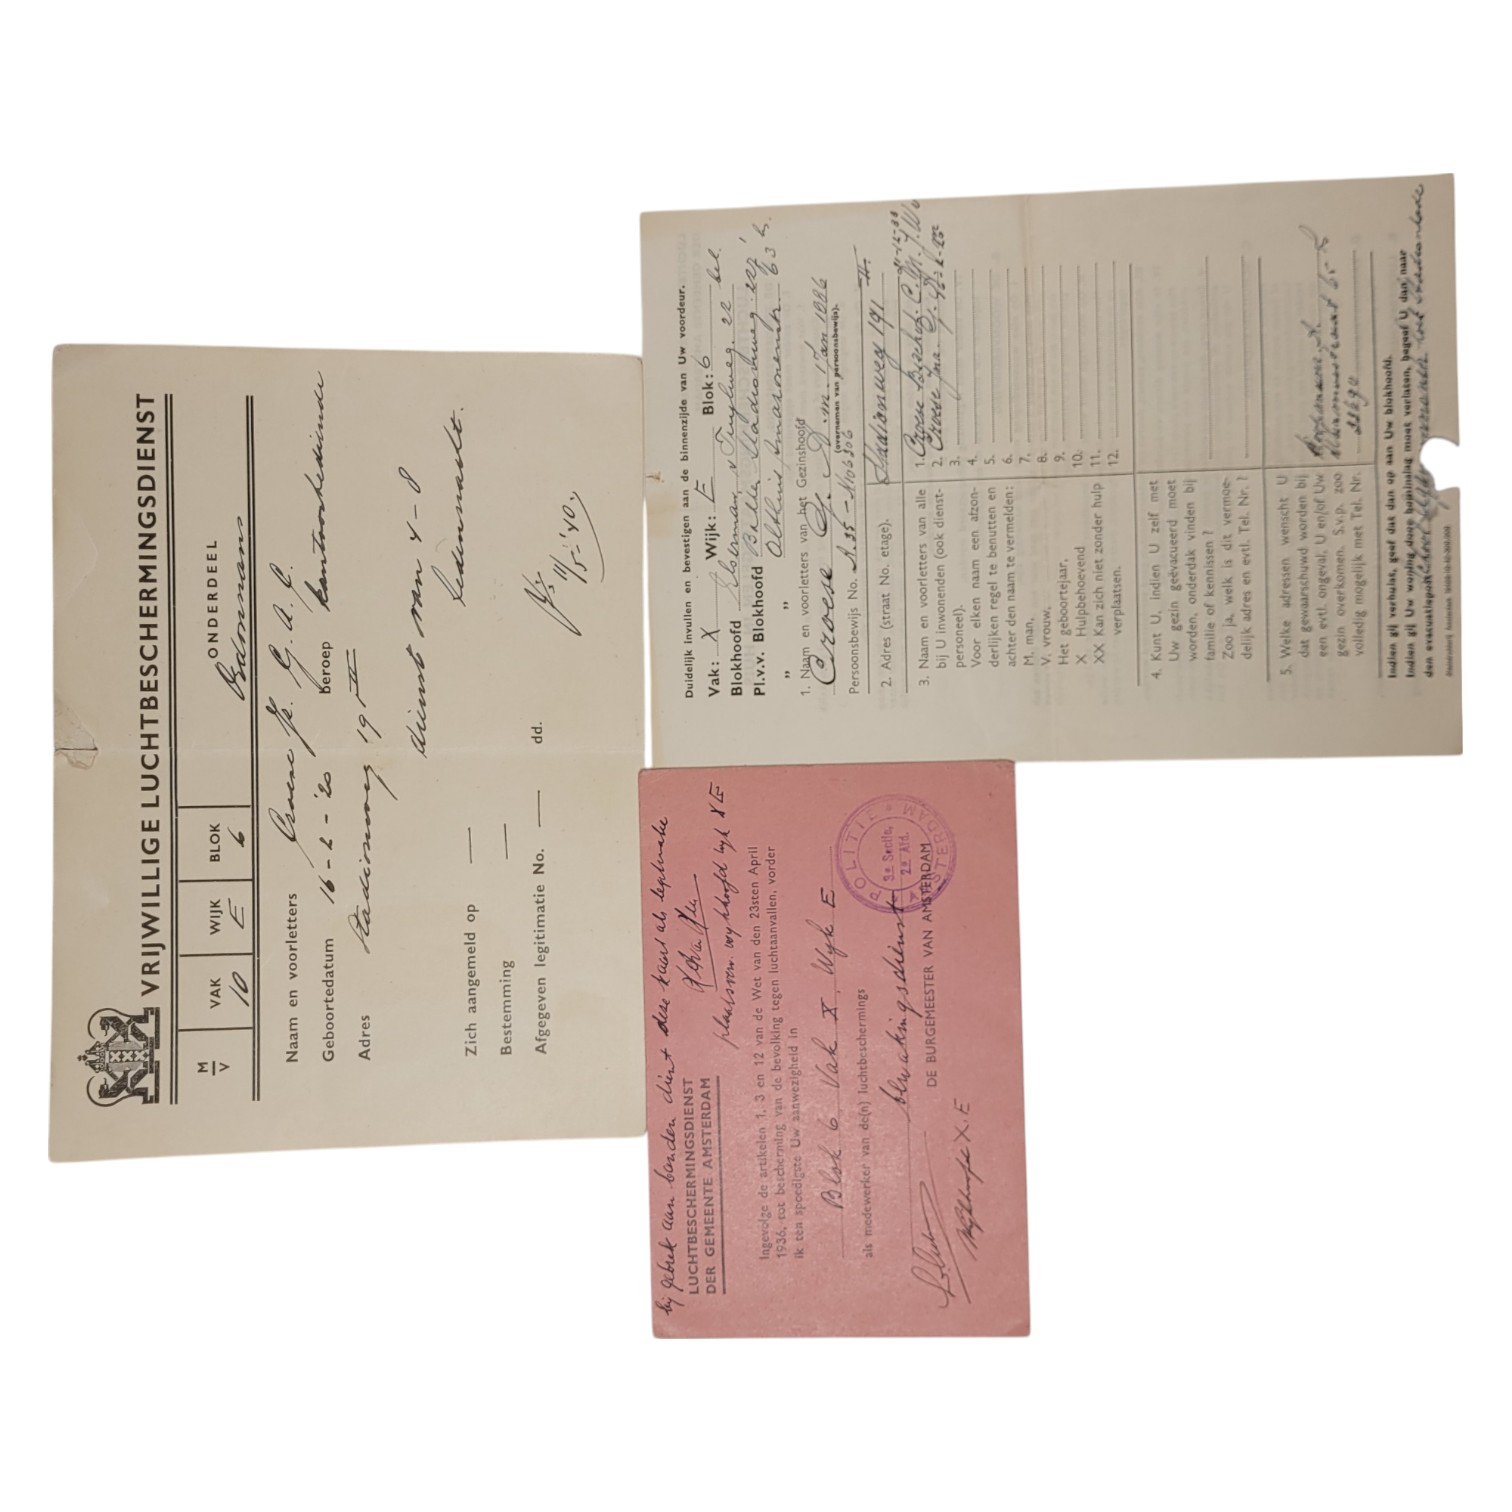 VRIJWILLIGE LUCHTBESCHERMINGSDIENST
M/V VAK WIJK BLOK ONDERDEEL
10 E 6
Naam en voorletters Croese Jr. G. A. C.
Geboortedatum 16-2-'20 beroep kantoorbediende
Adres Stadionweg 191 II
dienst van 4-8
Zich aangemeld op —
Bestemming —
Afgegeven legitimatie No. — dd.
11/5-'40.
Duidelijk invullen en bevestigen aan de binnenzijde van Uw voordeur.
Vak: X Wijk: E Blok: 6
Blokhoofd
Pl.v.v. Blokhoofd Stadionweg
" "
1. Naam en voorletters van het Gezinshoofd
Croese G. 17 Jan 1886
(overnemen van persoonsbewijs).
Persoonsbewijs No. A.35-
2. Adres (straat No. etage). Stadionweg 191 II
3. Naam en voorletters van alle
bij U inwonenden (ook dienst-
personeel).
Voor elken naam een afzon-
derlijken regel te benutten en
achter den naam te vermelden:
M. man.
V. vrouw.
Het geboortejaar.
X Hulpbehoevend
XX Kan zich niet zonder hulp
verplaatsen.
1. Croese
2. Croese Jr. G.
3.
4.
5.
6.
7.
8.
9.
10.
11.
12.
4. Kunt U, indien U zelf met
Uw gezin geëvacueerd moet
worden, onderdak vinden bij
familie of kennissen ?
Zoo ja, welk is dit vermoe-
delijk adres en evtl. Tel. Nr. ?
5. Welke adressen wenscht U
dat gewaarschuwd worden bij
een evtl. ongeval, U en/of Uw
gezin overkomen. S.v.p. zoo
volledig mogelijk met Tel. Nr.
Indien gij verhuist, geef dat dan op aan Uw blokhoofd.
Indien gij Uw woning door bominslag moet verlaten, begeef U dan naar
den evacuatiepost
bij gebrek aan banden dient deze kaart als legitimatie
LUCHTBESCHERMINGSDIENST
DER GEMEENTE AMSTERDAM
plaatsverv. wijkhoofd wijk X E
Ingevolge de artikelen 1, 3 en 12 van de Wet van den 23sten April
1936, tot bescherming van de bevolking tegen luchtaanvallen, vorder
ik ten spoedigste Uw aanwezigheid in
Blok 6 Vak X Wijk E
als medewerker van de(n) luchtbeschermings
bewakingsdienst
DE BURGEMEESTER VAN AMSTERDAM,
Wijkhoofd X. E
POLITIE AMSTERDAM
3e Sectie,
2e Afd.